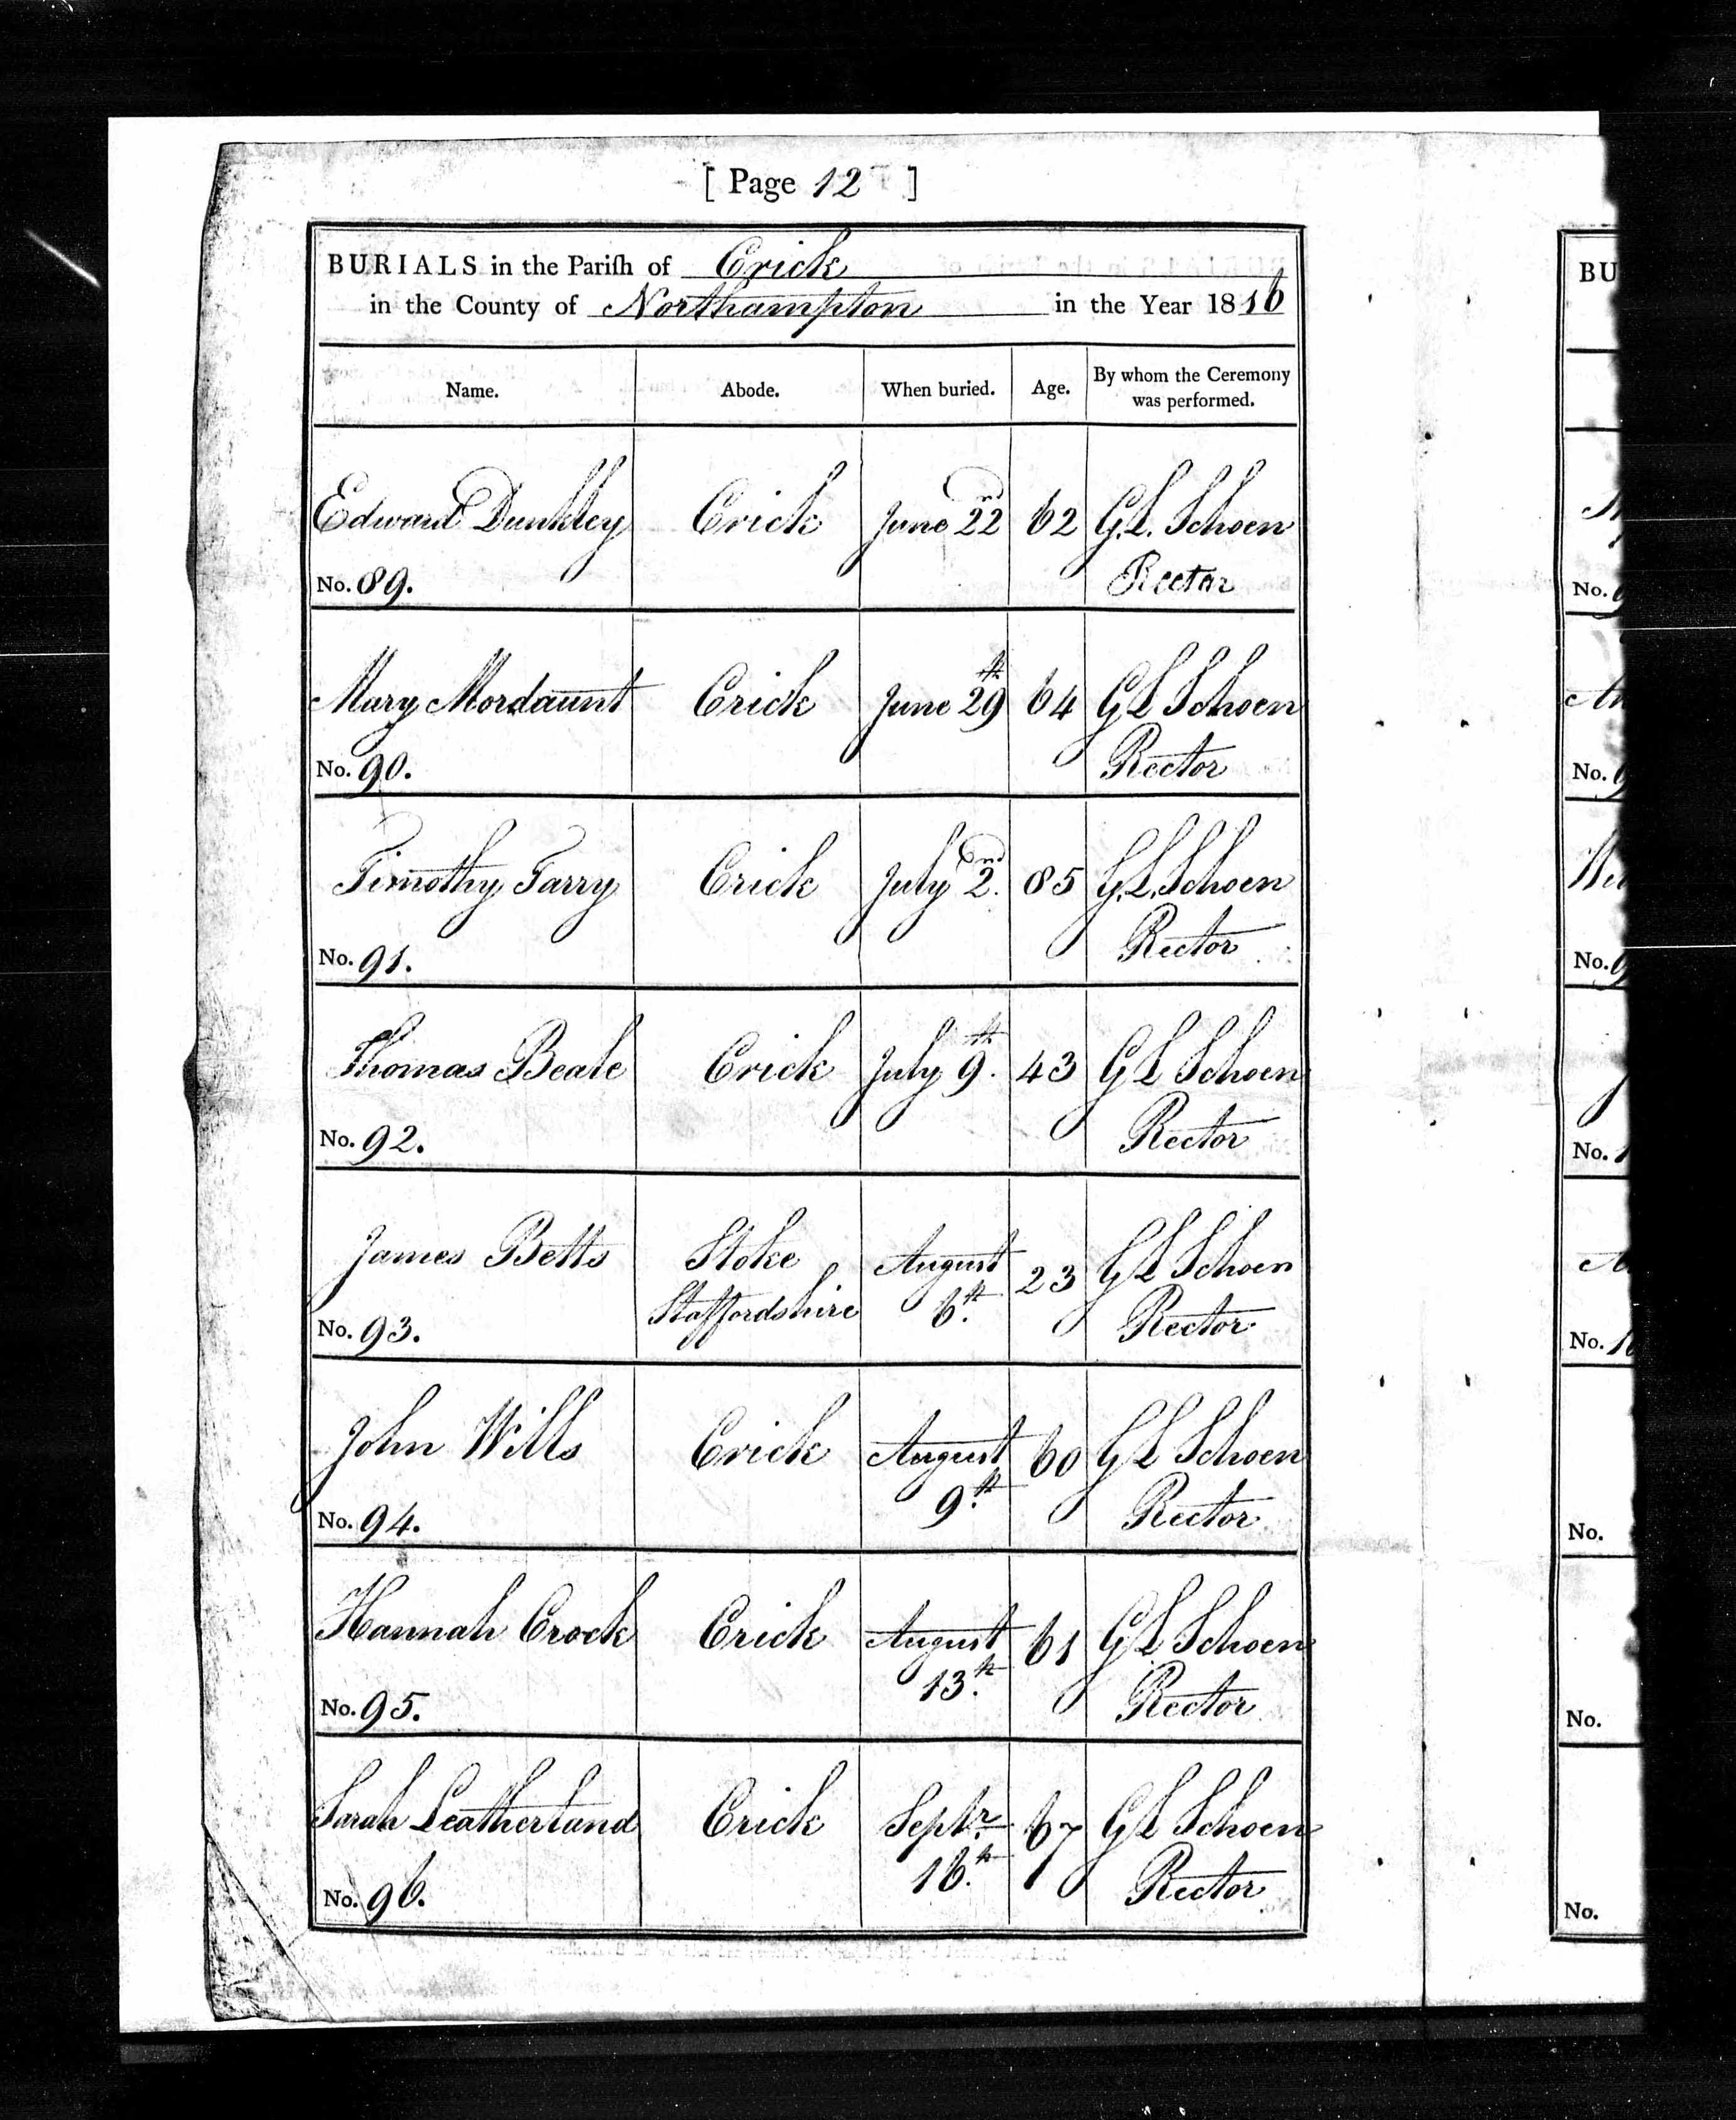 [ Page 12 ]
BURIALS in the Pariſh of Crick
in the County of Northampton in the Year 1816
Name. Abode. When buried. Age. By whom the Ceremony was performed.
Edward Dunkley Crick June 22nd 62 G.L. Schoen
No. 89. Rector
Mary Mordaunt Crick June 29th 64 G L Schoen
No. 90. Rector
Timothy Tarry Crick July 2nd. 85 G.L. Schoen
No. 91. Rector
Thomas Beale Crick July 9th. 43 G L Schoen
No. 92. Rector
James Betts Stoke August 23 G L Schoen
No. 93. Staffordshire 6th. Rector
John Wills Crick August 60 G L Schoen
No. 94. 9th. Rector
Hannah Crock Crick August 61 G L Schoen
No. 95. 13th. Rector
Sarah Leatherland Crick Septr. 67 G L Schoen
No. 96. 16th. Rector
BU
No.
No.
No.
No.
No.
No.
No.
No.